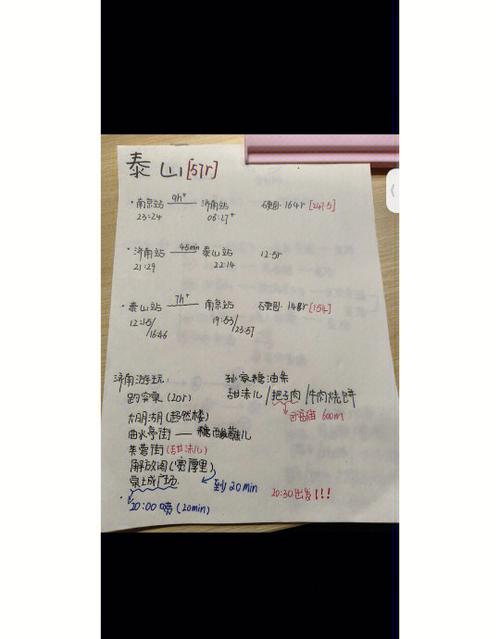 泰山[57r]
·南京站 9h+ 济南站 硬卧·164r [247.5]
23:24 08:27+
·济南站 45min 泰山站 12.5r
21:29 22:14
·泰山站 7h+ 南京站 硬卧·148r [154]
12:45/16:46 19:53/23:57
济南游玩: 孙家糖油条
趵突泉(20r) 甜沫儿/把子肉/牛肉烧饼
大明湖(超然楼) 600m
曲水亭街——糖醋蘸儿
芙蓉街(甜沫儿)
解放阁(宽厚里)
泉城广场 到20min 20:30出发!!!
·20:00喷(20min)